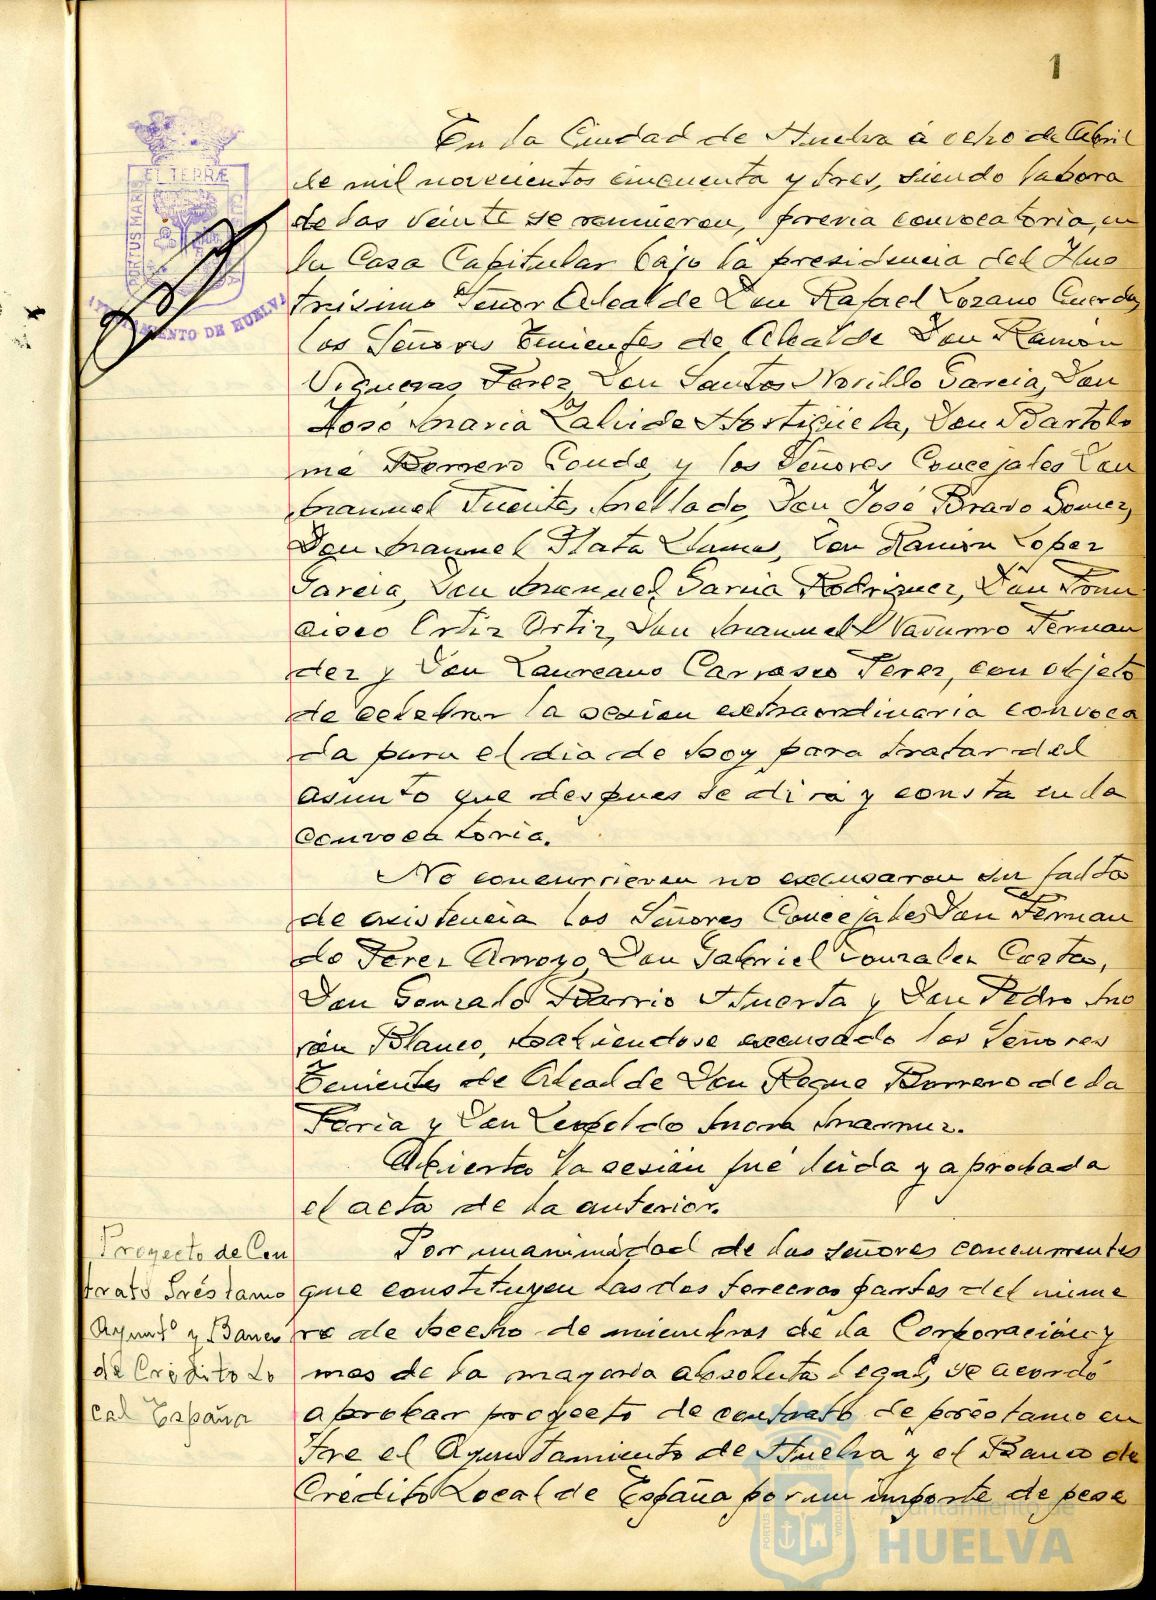 1
EL TERRÆ
PORTUS MARIS
AYUNTAMIENTO DE HUELVA
En la Ciudad de Huelva á ocho de Abril
de mil novecientos cincuenta y tres, siendo la hora
de las veinte se reunieron, previa convocatoria, en
la Casa Capitular bajo la presidencia del Ilus
trisimo Señor Alcalde Don Rafael Lozano Cuerda,
los Señores Tenientes de Alcalde Don Ramón
Vigueras Perez, Don Santos Norillo Garcia, Don
José Maria Zalvide Hortigüela, Don Bartolo
mé Borrero Conde y los Señores Concejales Don
Manuel Fuentes Mellado, Don José Bravo Gomez,
Don Manuel Plata Llamas, Don Ramón Lopez
Garcia, Don Manuel Garcia Rodriguez, Don Fran
cisco Ortiz Ortiz, Don Manuel Navarro Fernan
dez y Don Laureano Carrasco Perez, con objeto
de celebrar la sesion extraordinaria convoca
da para el dia de hoy para tratar del
asunto que despues se dirá y consta en la
convocatoria.
No concurrieron no excusaron su falta
de asistencia los Señores Concejales Don Fernan
do Perez Arroyo, Don Gabriel Gonzalez Costas,
Don Gonzalo Barrio Huerta y Don Pedro Mo
rón Blanco, habiendose excusado los Señores
Tenientes de Alcalde Don Roque Borrero de la
Feria y Don Leopoldo Mora
Abierta la sesión fué leida y aprobada
el acta de la anterior.
Proyecto de Con
trato Préstamo
Ayuntº y Banco
de Crédito Lo
cal España
Por unanimidad de los señores concurrentes
que constituyen las dos terceras partes del núme
ro de hecho de miembros de la Corporación y
mas de la mayoria absoluta legal, se acordó
aprobar proyecto de contrato de préstamo en
tre el Ayuntamiento de Huelva y el Banco de
Crédito Local de España por un importe de pese
Ayuntamiento de
HUELVA